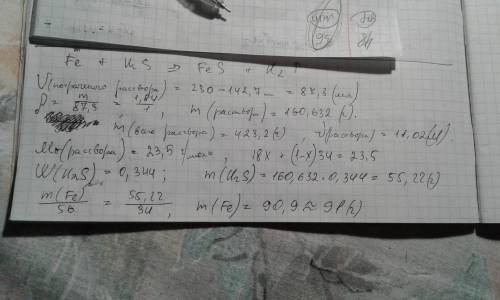 Fe + H₂S ⇒ FeS + H₂↑
V( раствора) = 230 − 142,7 = 87,3 (мл)
ρ = m/87,3 = 1,84/1, m(раствора) = 160,632 (г).
m( раствора) = 423,2(г), ν(раствора) = 18,02(л)
Mr(раствора) = 23,5 г/моль, 18x + (1-x)34 = 23,5
W(H₂S) = 0,344; m(H₂S) = 160,632 · 0,344 = 55,22(г)
m(Fe)/56 = 55,22/34, m(Fe) = 90,9 ≈ 91(г)